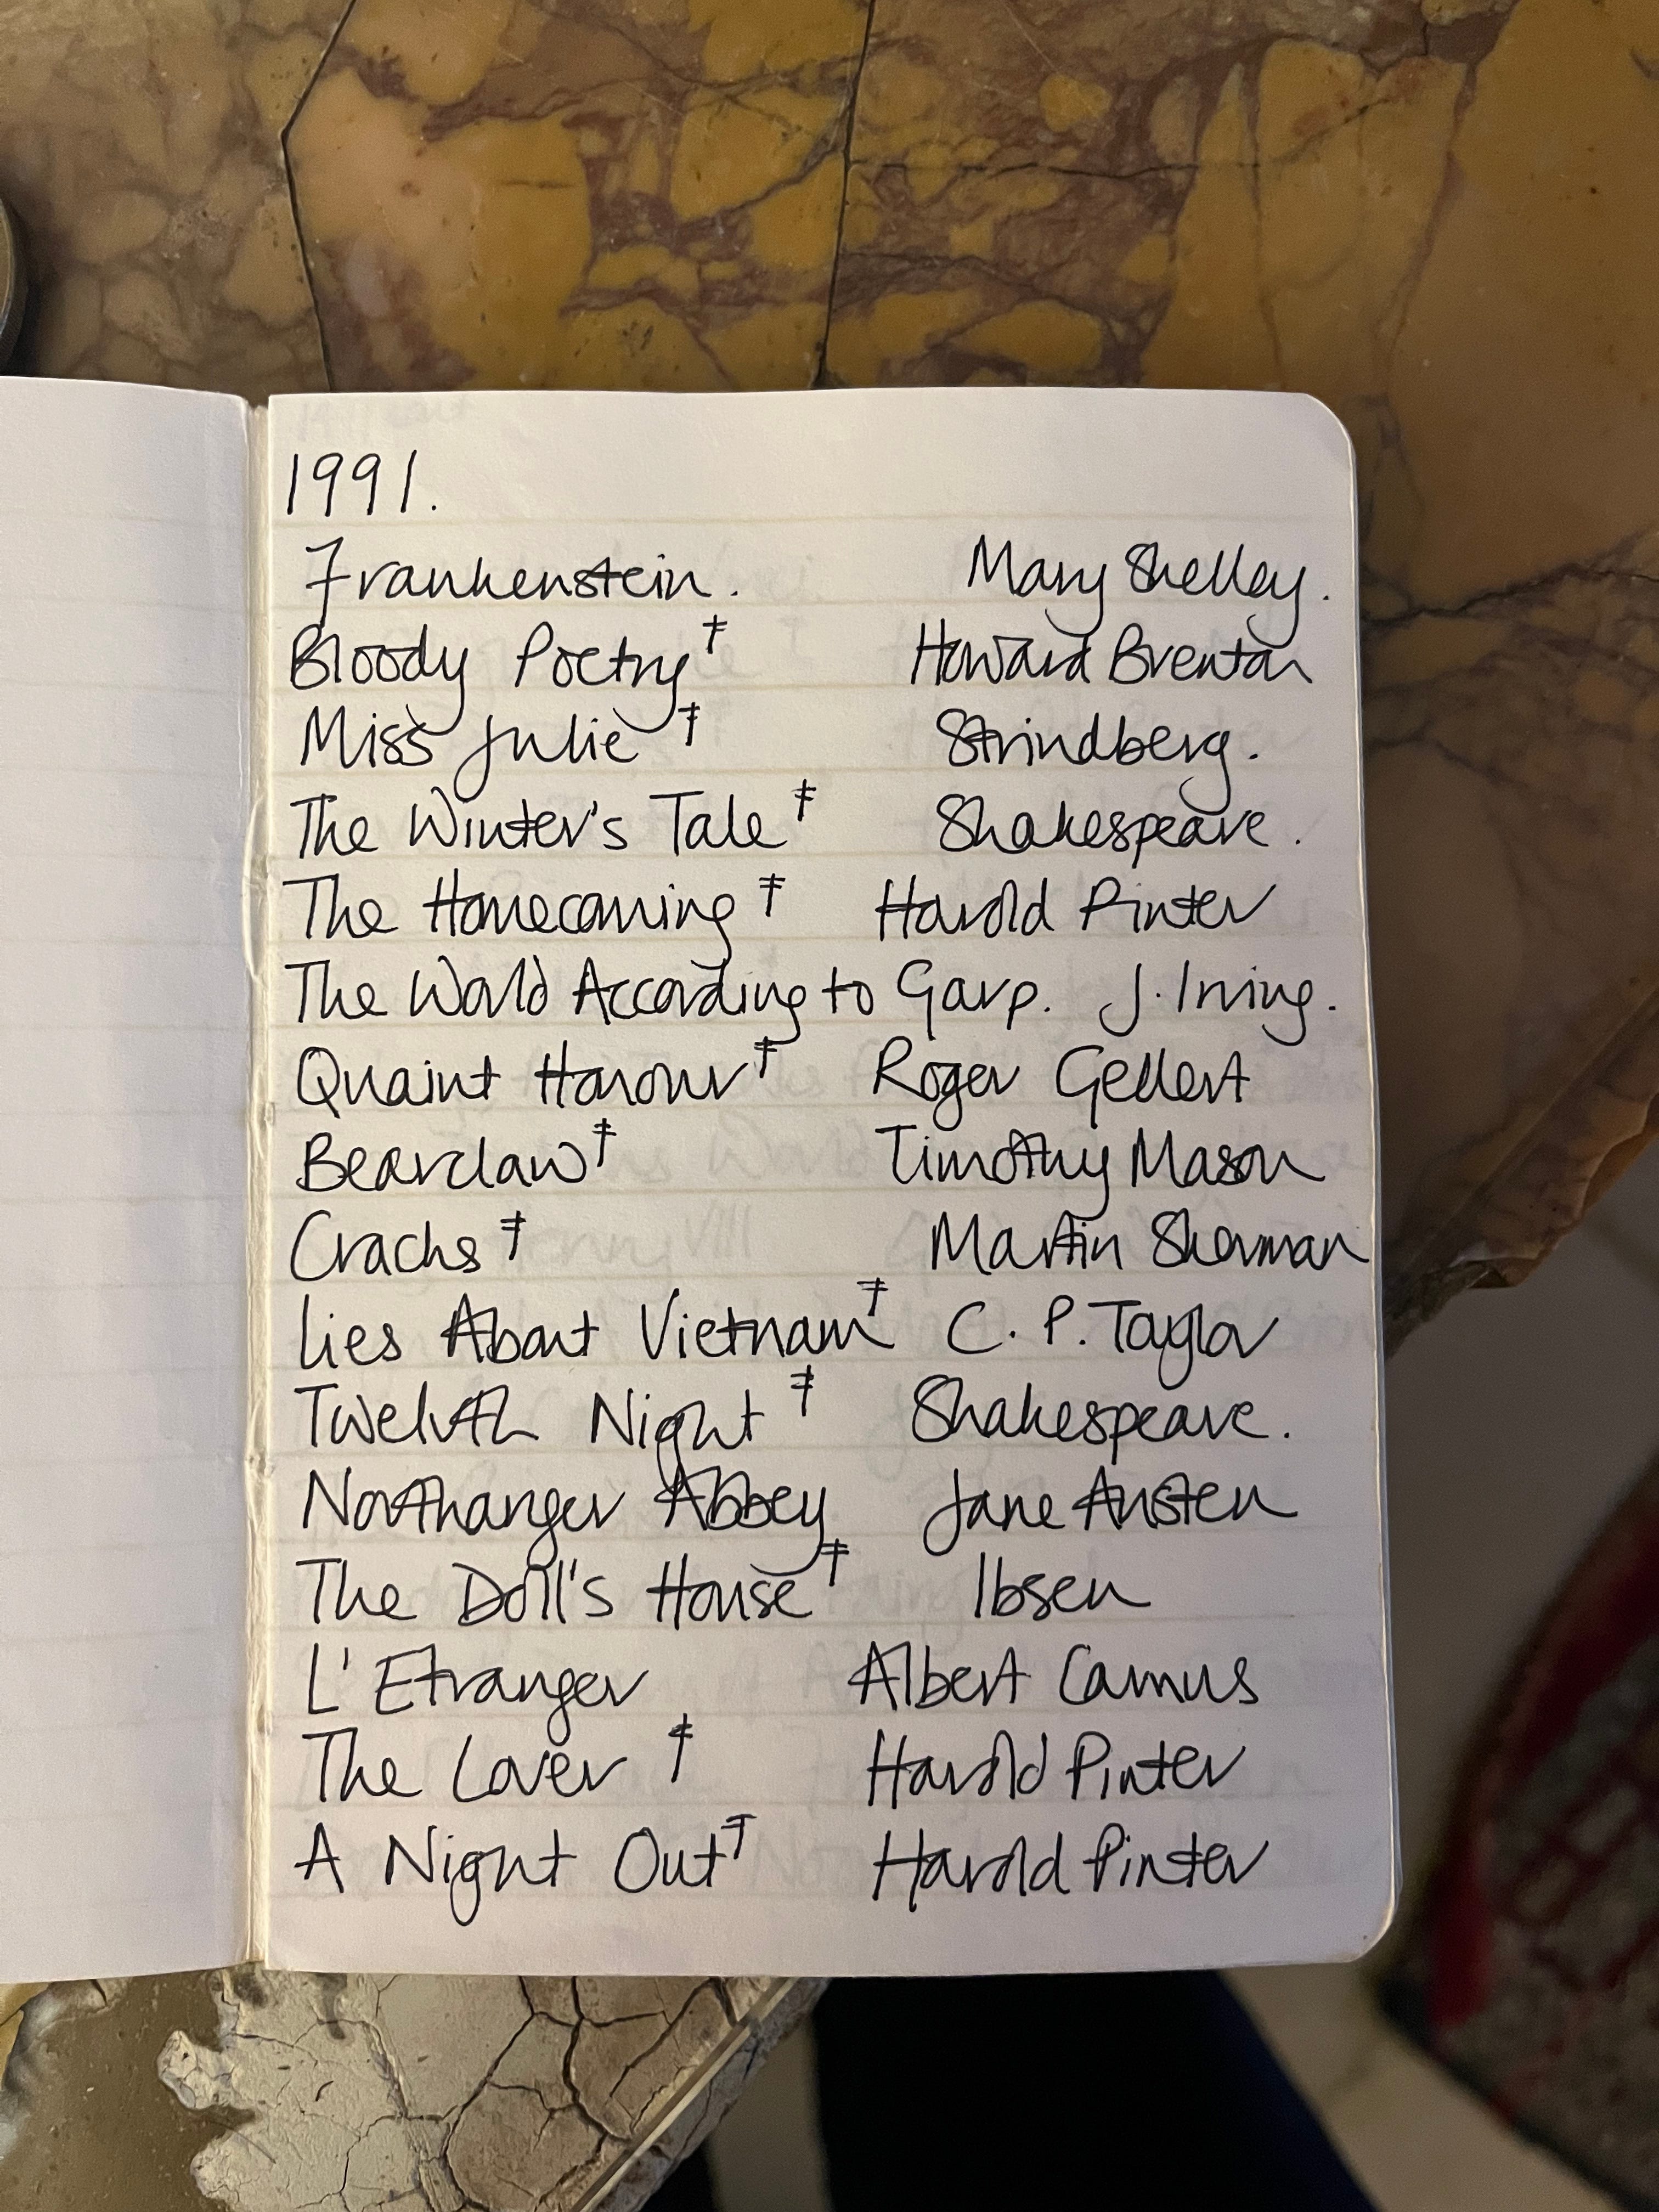 1991.
Frankenstein. Mary Shelley.
Bloody Poetry ‡ Howard Brenton
Miss Julie ‡ Strindberg.
The Winter's Tale ‡ Shakespeare.
The Homecoming ‡ Harold Pinter
The World According to Garp. J. Irving.
Quaint Honour ‡ Roger Gellert
Bearclaw ‡ Timothy Mason
Cracks ‡ Martin Sherman
Lies About Vietnam ‡ C. P. Taylor
Twelvth Night ‡ Shakespeare.
Northanger Abbey Jane Austen
The Doll's House ‡ Ibsen
L'Etranger Albert Camus
The Lover ‡ Harold Pinter
A Night Out ‡ Harold Pinter